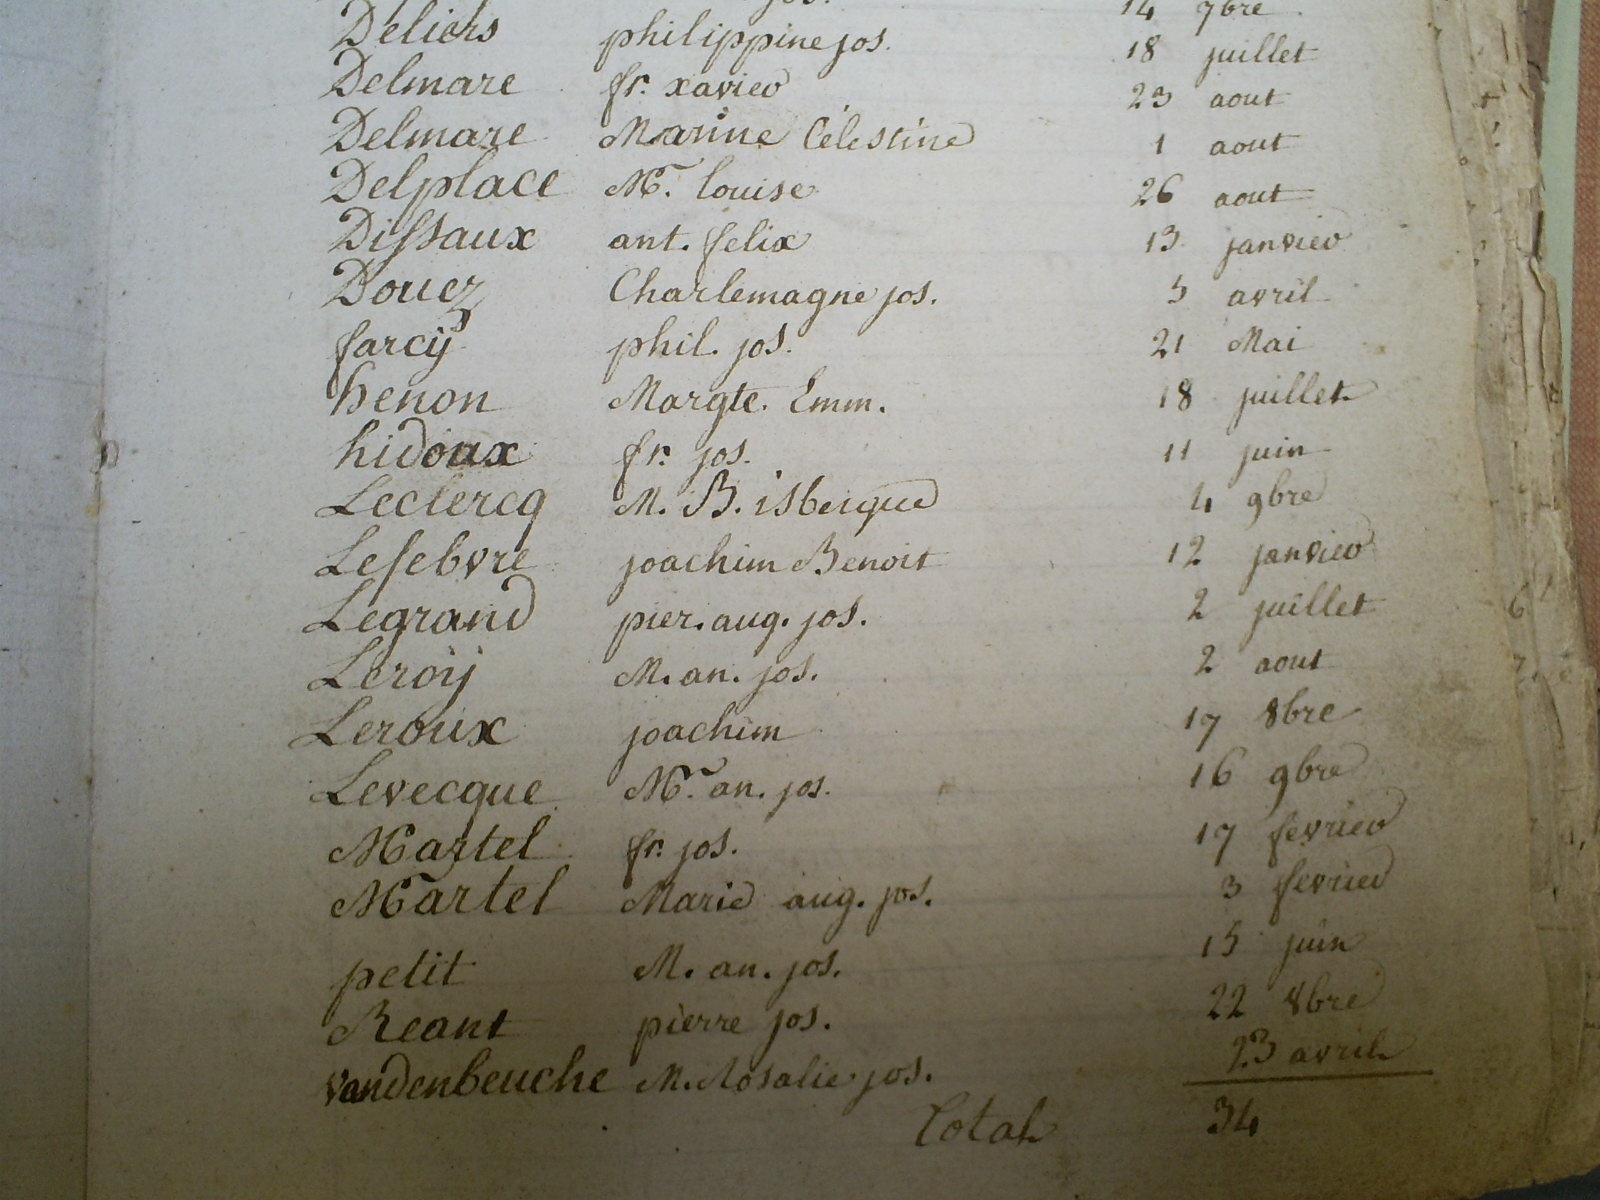 jos. 14 9bre
Deliers philippine jos. 18 juillet
Delmare fr. xavier 23 aout
Delmare Marine Célestine 1 aout
Delplace Me. louise 26 aout
Dissaux ant. felix 13 janvier
Douez Charlemagne jos. 5 avril
farcÿ phil. jos. 21 Mai
henon Margte. Emm. 18 juillet
hidoux fr. jos. 11 juin
Leclercq M. B. isbergue 4 9bre
Lefebvre joachim Benoit 12 janvier
Legrand pier. aug. jos. 2 juillet
Leroÿ M. an. jos. 2 aout
Leroux joachim 17 8bre
Levecque Me. an. jos. 16 9bre
Martel fr. jos. 17 fevrier
Martel Marie aug. jos. 3 fevrier
petit M. an. jos. 15 juin
Reant pierre jos. 22 8bre
vandenbeuche M. Rosalie jos. 23 avril
Total 34